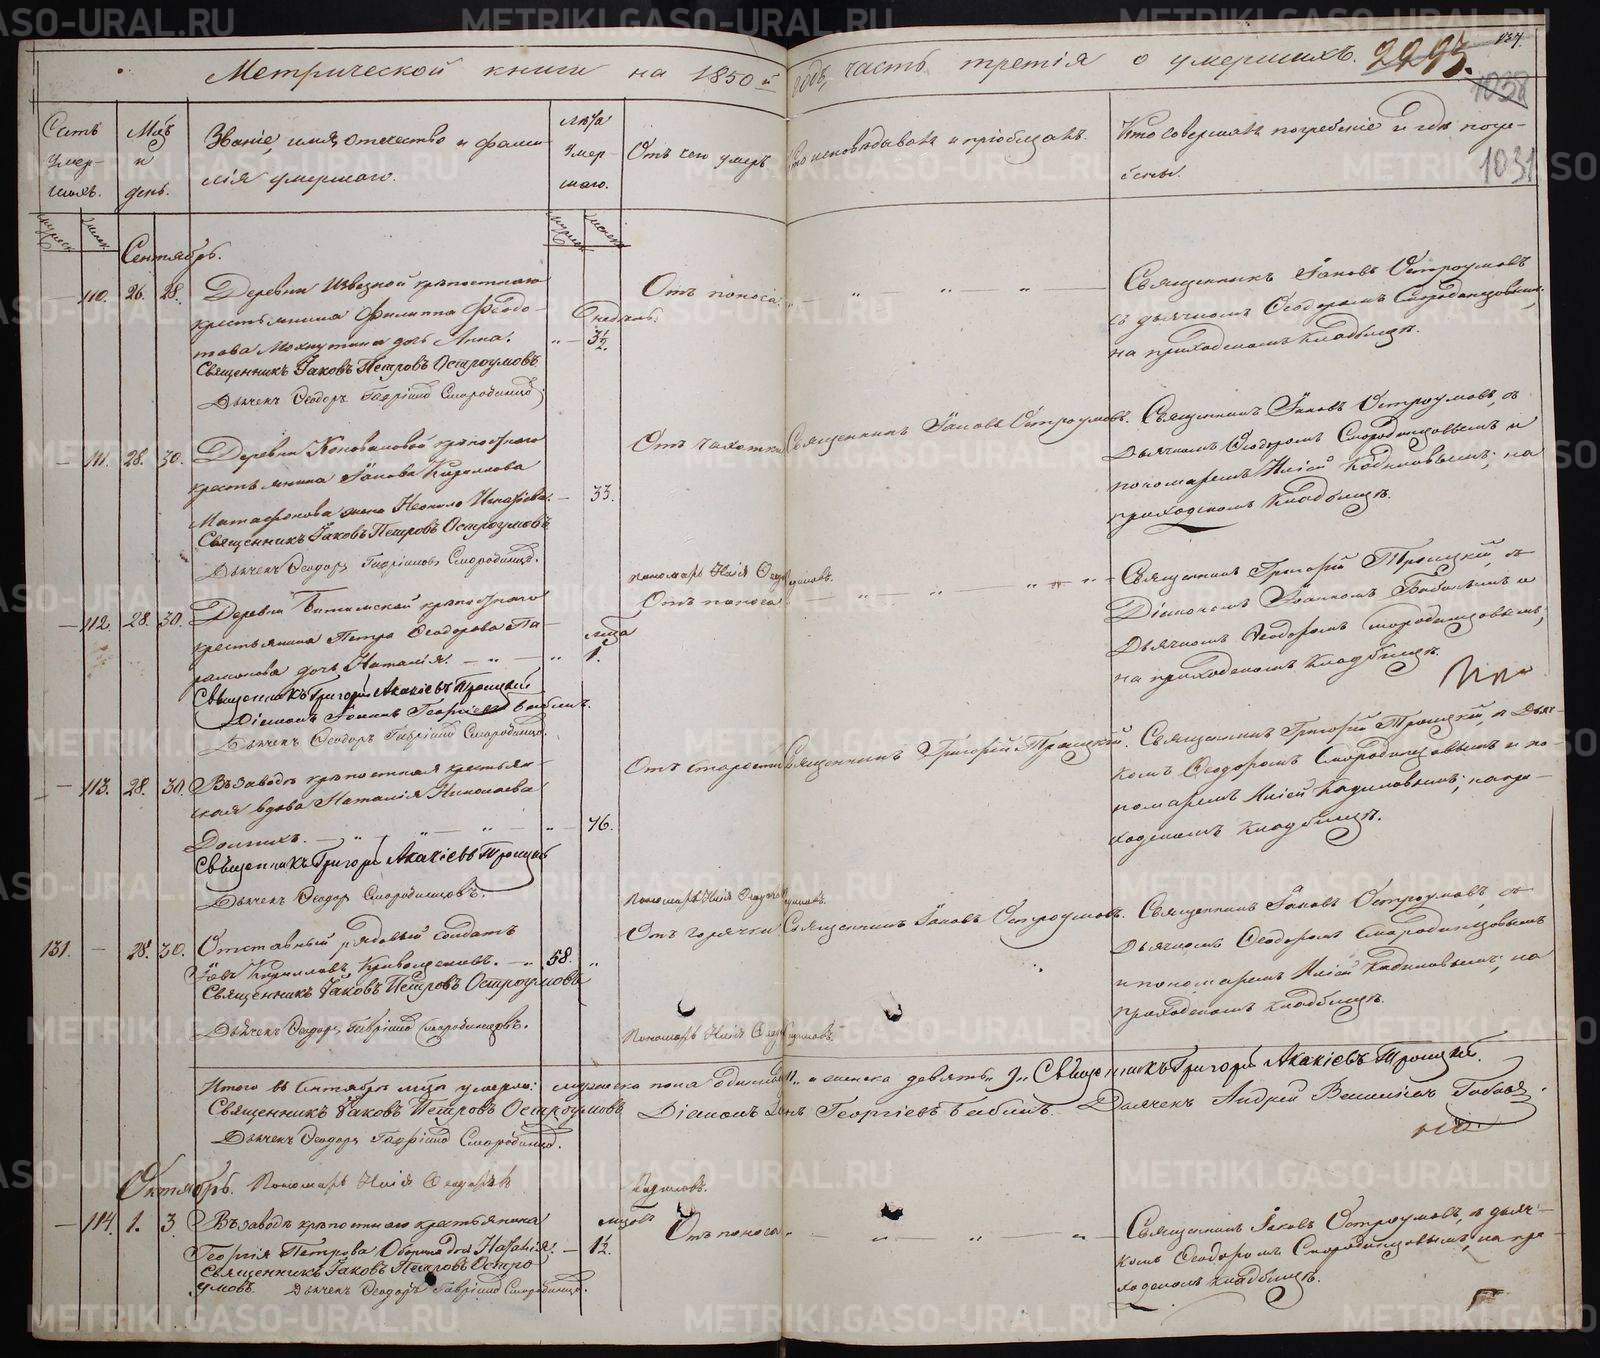 Метрической книги на 1850 й годъ, часть третія о умершихъ. 2295.
137.
1038
1031
Счетъ умер-шихъ.
Мцъ и день.
Званіе, имя, отчество и фами-
лія умершаго.
лѣта умер-шаго.
Отъ чего умеръ
Кто исповѣдывалъ и пріобщалъ.
Кто совершалъ погребеніе и гдѣ погре-
бены.
мужеск женск
мужеск женск
Сентябрь.
— 110. 26. 28.
Деревни Извезной крѣпостнаго
крестьянина Филиппа Ѳедо-
това дочь Анна.
недѣль.
3½.
Отъ поноса
Священникъ Іаковъ Остроумовъ
съ дьячкомъ Ѳеодоромъ Смородинцовымъ
на приходскомъ кладбищѣ.
Священникъ Іаковъ Петровъ Остроумовъ
Дьячекъ Ѳеодоръ Гавріиловъ Смородинцовъ
— 111. 28. 30.
Деревни Коноваловой крѣпостнаго
крестьянина Іакова Кирилова
Матафонова жена Неонила Игнатіева. — 33.
Отъ чахотки
Священникъ Іаковъ Остроумовъ.
Священникъ Іаковъ Остроумовъ, съ
дьячкомъ Ѳеодоромъ Смородинцовымъ и
пономаремъ Иліей Кадиловымъ; на
приходскомъ кладбищѣ.
Священникъ Іаковъ Петровъ Остроумовъ
Дьячекъ Ѳеодоръ Гавріиловъ Смородинцовъ.
пономарь Илія
— 112. 28. 30.
Деревни Битимской крѣпостнаго
крестьянина Петра Ѳеодорова Па-
рамонова дочь Наталія. — " — "
мца
1.
Отъ поноса
Священникъ Григорій Троицкій, съ
Діакономъ Іоанномъ Бабинымъ и
дьячкомъ Ѳеодоромъ Смородинцовымъ,
на приходскомъ кладбищѣ.
Священникъ Григорій Акакіевъ Троицкій
Діаконъ Іоаннъ Георгіевъ Бабинъ.
Дьячекъ Ѳеодоръ Гавріиловъ Смородинцовъ.
— 113. 28. 30.
Въ заводѣ крѣпостная крестьян-
ская вдова Наталія Николаева
Долгихъ. — 76.
Отъ старости
Священникъ Григорій Троицкій.
Священникъ Григорій Троицкій, съ дьяч-
комъ Ѳеодоромъ Смородинцовымъ и по-
номаремъ Иліей Кадиловымъ; на при-
ходскомъ кладбищѣ.
Священникъ Григорій Акакіевъ Троицкій
Дьячекъ Ѳеодоръ Смородинцовъ.
Пономарь Илія
131. — 28. 30.
Отставный рядовый солдатъ
Іовъ Кириловъ Кривощековъ. — " 58. "
Отъ горячки
Священникъ Іаковъ Остроумовъ.
Священникъ Іаковъ Остроумовъ, съ
дьячкомъ Ѳеодоромъ Смородинцовымъ
и пономаремъ Иліей Кадиловымъ; на
приходскомъ кладбищѣ.
Священникъ Іаковъ Петровъ Остроумовъ
Дьячекъ Ѳеодоръ Гавріиловъ Смородинцовъ.
Пономарь Илія
Итого въ Сентябрѣ мцѣ умерло: мужеска пола и женска девять 9
Священникъ Григорій Акакіевъ Троицкій.
Священникъ Іаковъ Петровъ Остроумовъ Діаконъ Георгіевъ Бабинъ. Дьячекъ Андрей
Дьячекъ Ѳеодоръ Гавріиловъ Смородинцовъ.
Октябрь.
Пономарь Илія Ѳеодоровъ Кадиловъ.
— 114. 1. 3.
Въ заводѣ крѣпостнаго крестьянина
Георгія Петрова дочь Наталія. — 1½.
мцовъ
Отъ поноса
Священникъ Іаковъ Остроумовъ, съ дьяч-
комъ Ѳеодоромъ Смородинцовымъ, на при-
ходскомъ кладбищѣ.
Священникъ Іаковъ Петровъ Остро
умовъ. Дьячекъ Ѳеодоръ Гавріиловъ Смородинцовъ.
METRIKI.GASO-URAL.RU